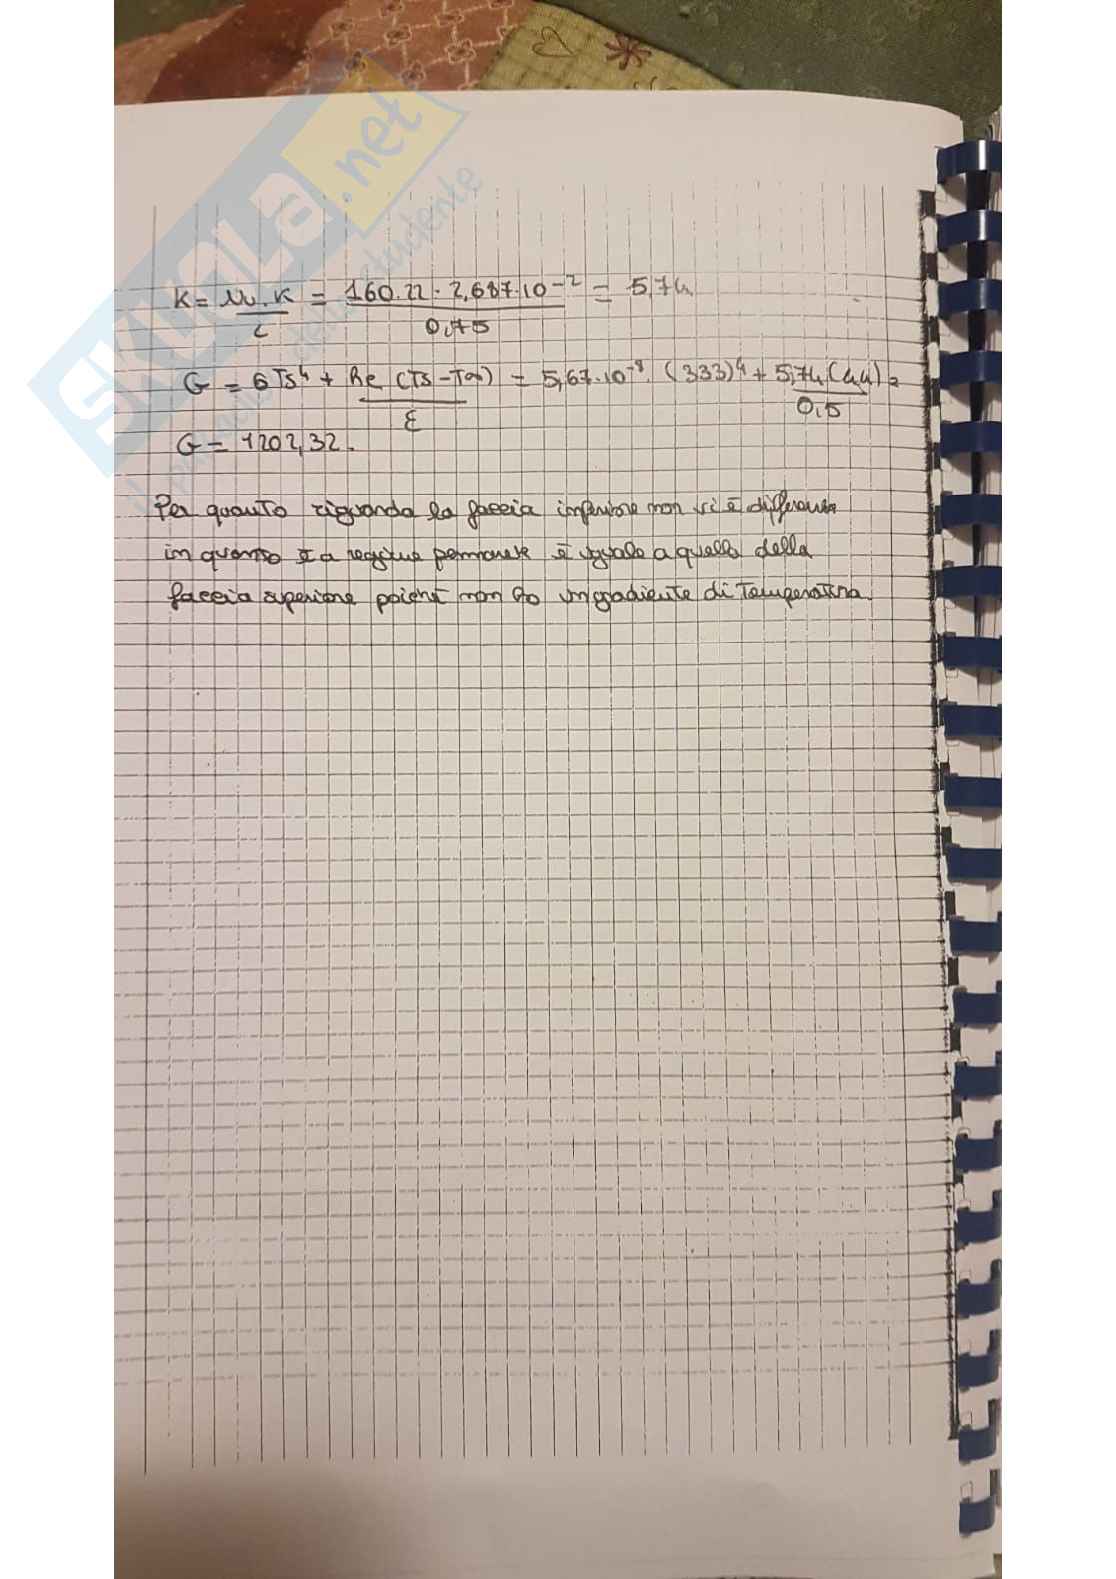 SKUOLA.net
il portale dello studente
K = Nu . K / L = 160.22 . 2,687.10⁻² / 0,75 = 5,74
G = σTs⁴ + he (Ts - T∞) / ε = 5,67.10⁻⁸. (333)⁴ + 5,74 (44) / 0,5 =
G = 1202,32.
Per quanto riguarda la faccia inferiore non vi è differenza
in quanto a regime permanente è uguale a quella della
faccia superiore poiché non ho un gradiente di temperatura.